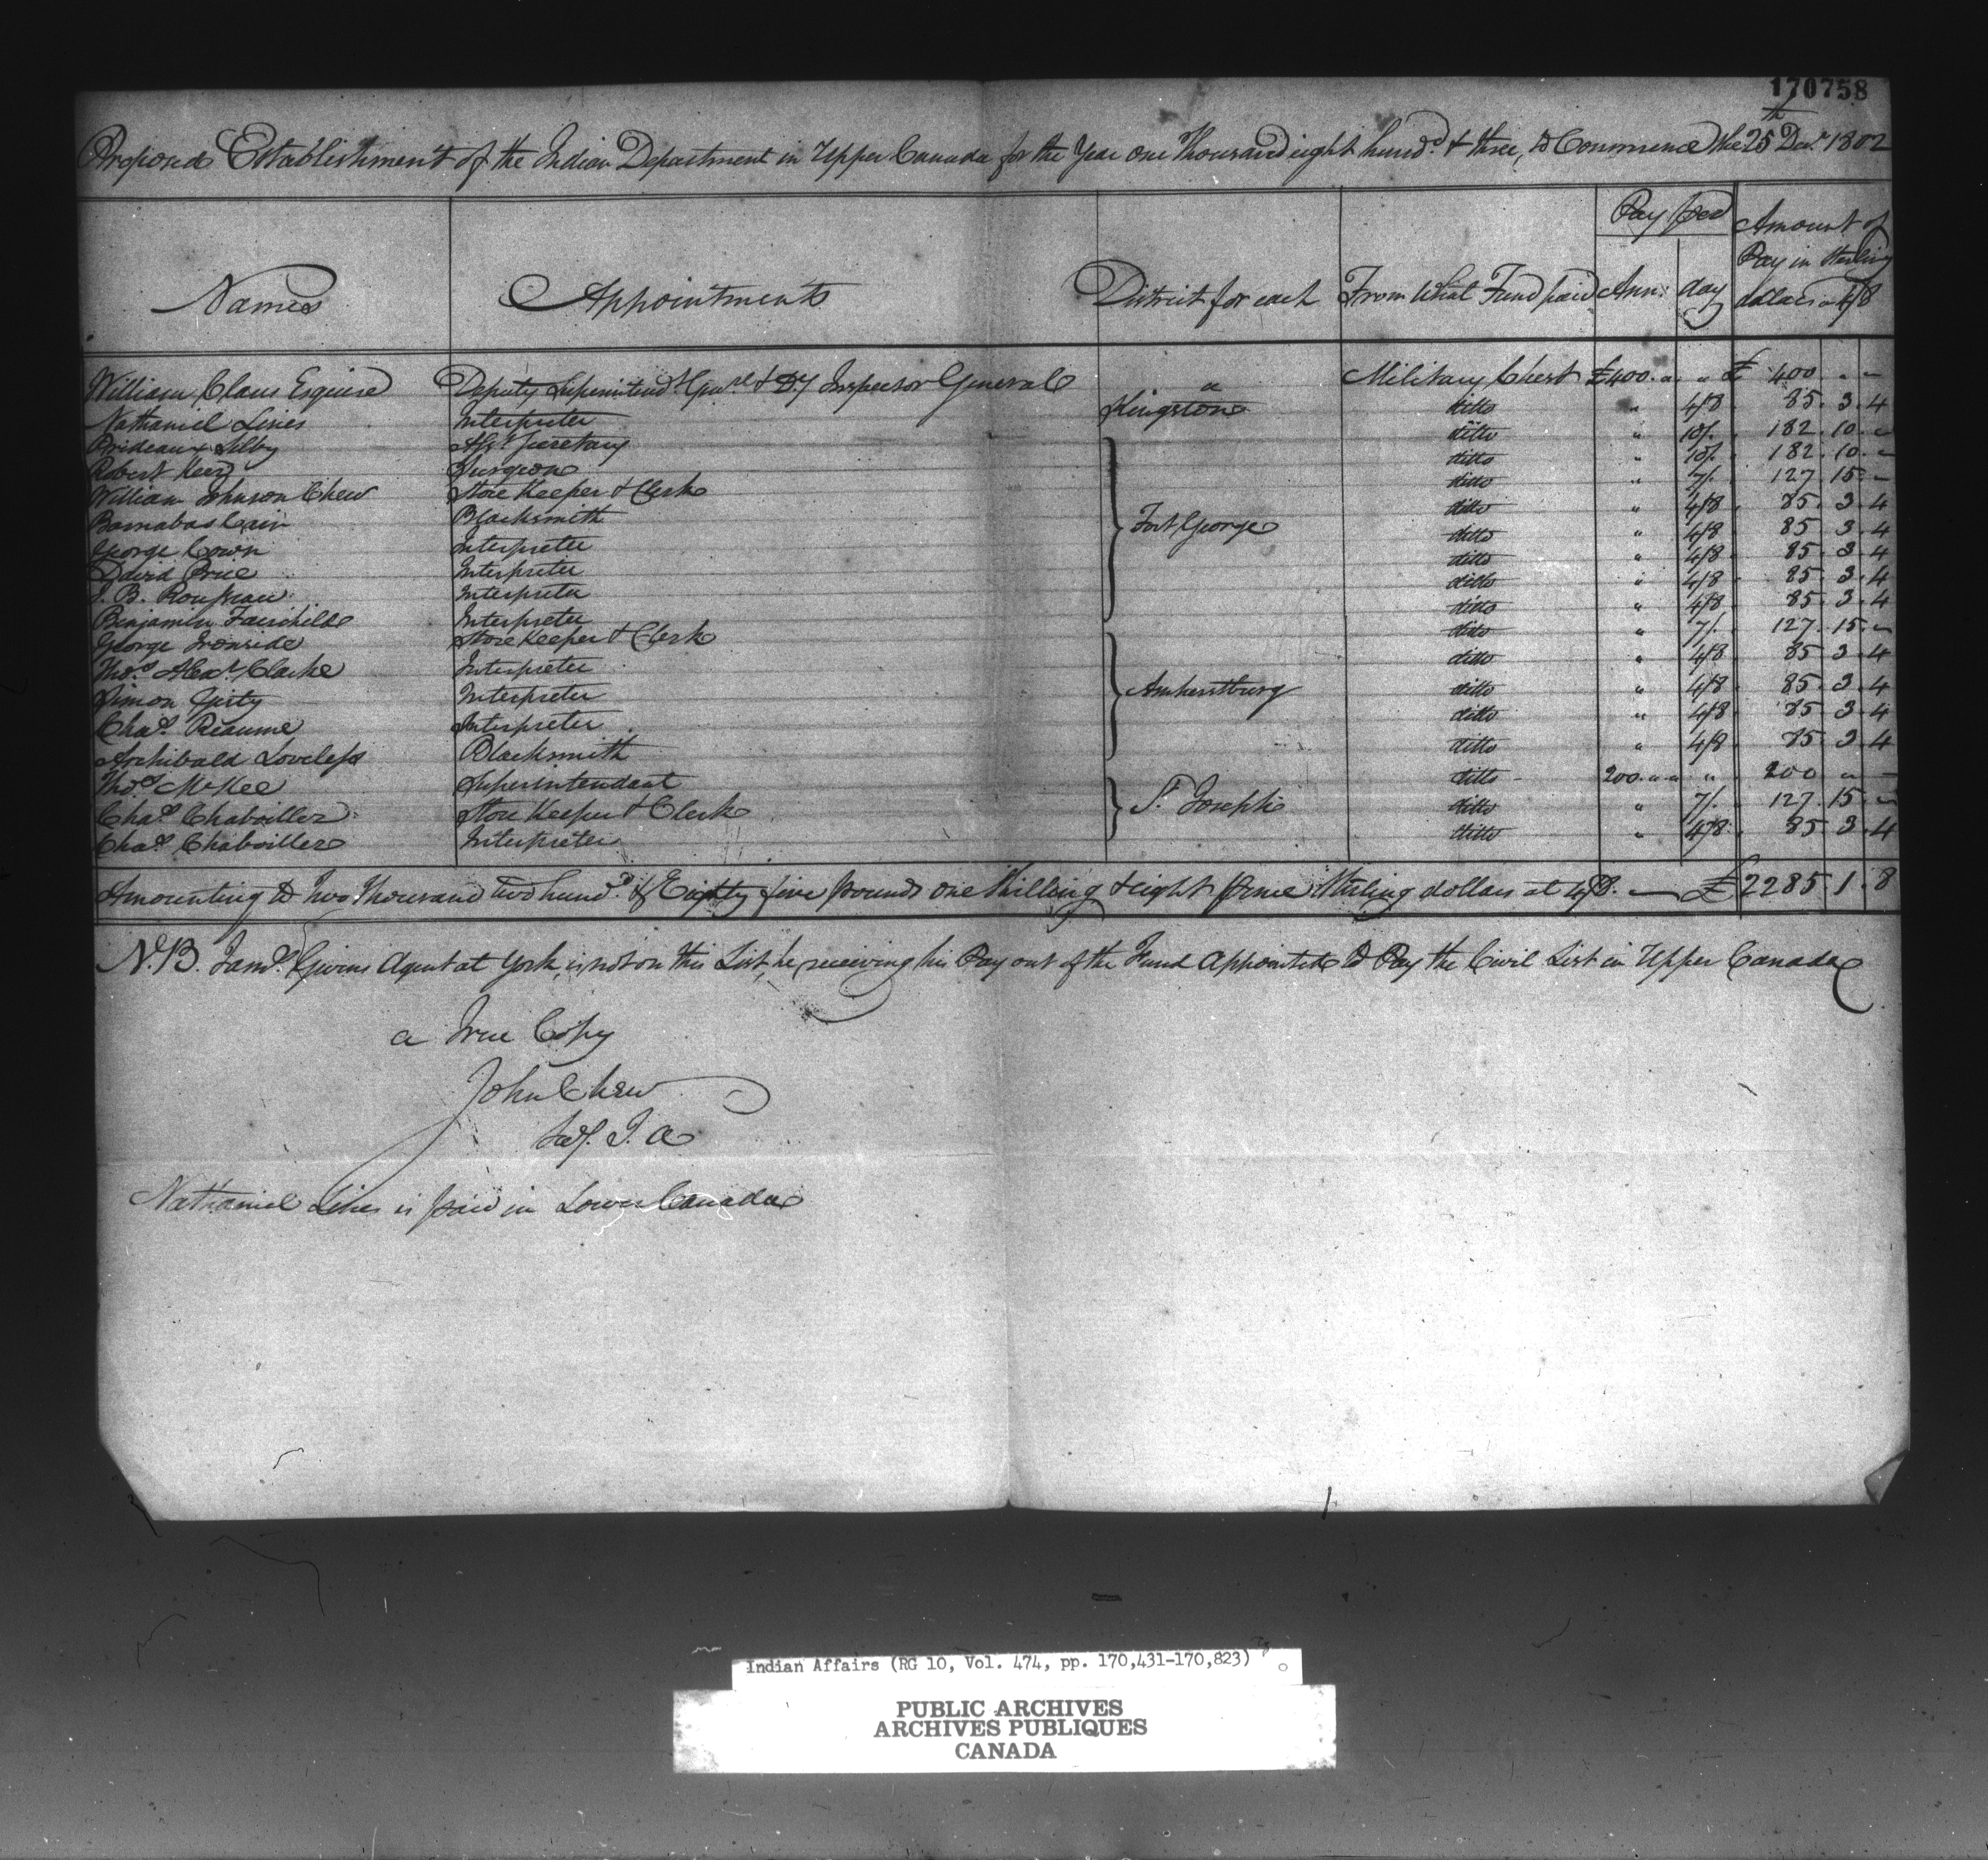 170758
Proposed Establishment of the Indian Department in Upper Canada for the Year one Thousand eight hund.d & three, to Commence the 25th Decr. 1802
Names Appointments District for each From What Fund paid Pay per Ann: day Amount of Pay in Sterling dollars a 4/8
William Claus Esquire Deputy Superintend.t Gen.l & D.y Inspector General " Military Chest £400. " " " £ 400 " "
Nathaniel Lines Interpreter Kingston ditto " 4/8 85. 3. 4
Prideaux Selby Asst. Secretary Fort George ditto " 10/. 182. 10. "
Robert Kerr Surgeon ditto " 10/. 182. 10. "
William Johnson Chew Store Keeper & Clerk ditto " 7/. 127. 15. "
Barnabas Cain Blacksmith ditto " 4/8 85. 3. 4
George Cown Interpreter ditto " 4/8 85. 3. 4
David Price Interpreter ditto " 4/8 85. 3. 4
J. B. Rousseau Interpreter ditto " 4/8 85. 3. 4
Benjamin Fairchild Interpreter ditto " 4/8 85. 3. 4
George Ironside Store Keeper & Clerk Amherstburg ditto " 7/. 127. 15. "
Tho.s Alex.r Clarke Interpreter ditto " 4/8 85. 3. 4
Simon Girty Interpreter ditto " 4/8 85. 3. 4
Cha.s Reaume Interpreter ditto " 4/8 85. 3. 4
Archibald Loveless Blacksmith ditto " 4/8 85. 3. 4
Tho.s McKee Superintendant St. Joseph ditto 200. " " " 200 " "
Cha.s Chaboillez Store Keeper & Clerk ditto " 7/. 127. 15. "
Cha.s Chaboillez Interpreter ditto " 4/8 85. 3. 4
Amounting to Two Thousand two hund.d & Eighty five pounds one Shilling & eight pence Sterling dollars at 4/8. — £ 2285. 1. 8
N.B. Jam.s Givins Agent at York, is not on this List, he receiving his Pay out of the Fund appointed to Pay the Civil List in Upper Canada
a True Copy
John Chew
Sec.y I. A
Nathaniel Lines is paid in Lower Canada
Indian Affairs (RG 10, Vol. 474, pp. 170,431-170,823)
PUBLIC ARCHIVES
ARCHIVES PUBLIQUES
CANADA